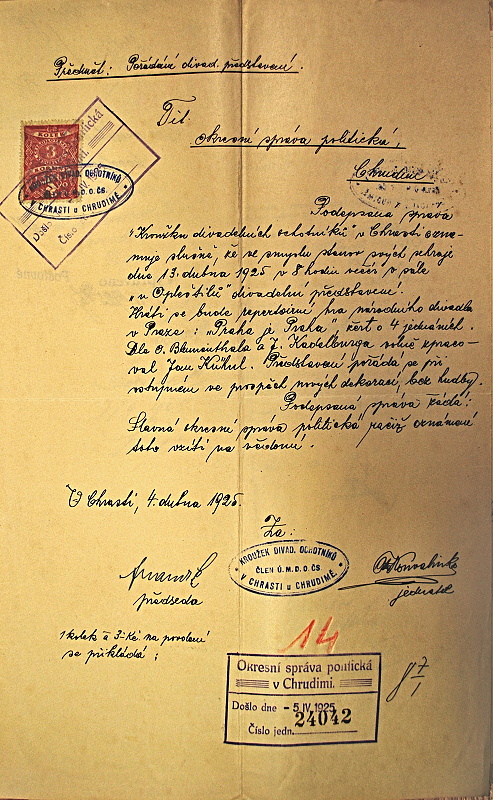 Předmět: Pořádání divad. představení.
Tit.
okresní správa politická,
Chrudim
KOLEK
3
KROUŽEK DIVAD. OCHOTNÍKŮ
ČLEN Ú.M.D.O.ČS.
V CHRASTI u CHRUDIMĚ
Došlo
Číslo
Podepsaná správa
"Kroužku divadelních ochotníků" v Chrasti ozna-
muje slušně, že ve smyslu stanov svých sehraje
dne 13. dubna 1925 v 8 hodin večer v sále
"u Opleštilů" divadelní představení.
Hráti se bude repertoirní hra národního divadla
v Praze: "Praha je Praha", žert o 4 jednáních.
Dle O. Blumenthala a J. Kadelburga volně zpraco-
val Jan Kühnl. Představení pořádá se při
vstupném ve prospěch nových dekorací, bez hudby.
Podepsaná správa žádá:
Slavná okresní správa politická račiž oznámení
toto vzíti na vědomí.
V Chrasti, 4. dubna 1925.
Za:
KROUŽEK DIVAD. OCHOTNÍKŮ
ČLEN Ú.M.D.O.ČS.
V CHRASTI u CHRUDIMĚ
předseda
jednatel
1 kolek á 3-Kč na povolení
se přikládá:
14
Okresní správa politická
v Chrudimi.
Došlo dne - 5. IV. 1925
Číslo jedn. 24042